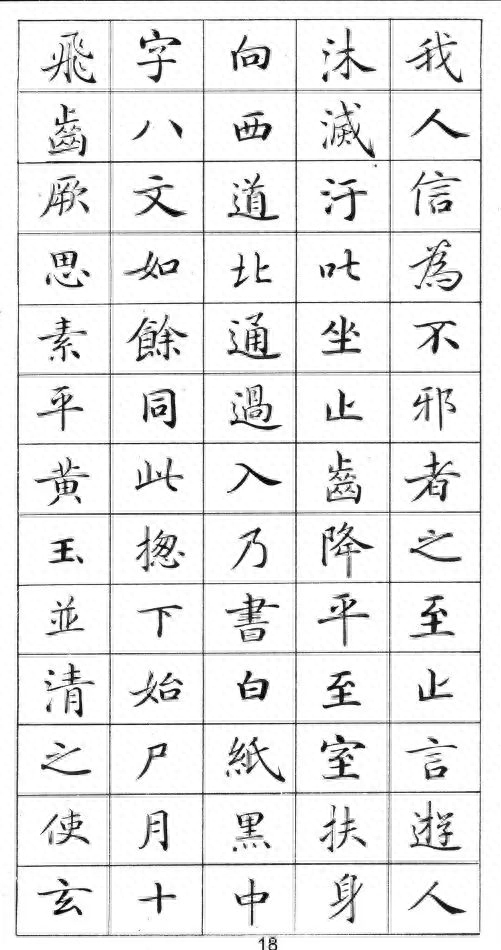 我人信為不邪者之至止言遊人
沐滅汙吐坐止齒降平至室扶身
向西道北通過入乃書白紙黑中
字八文如餘同此揔下始尸月十
飛齒厥思素平黃玉並清之使玄
18